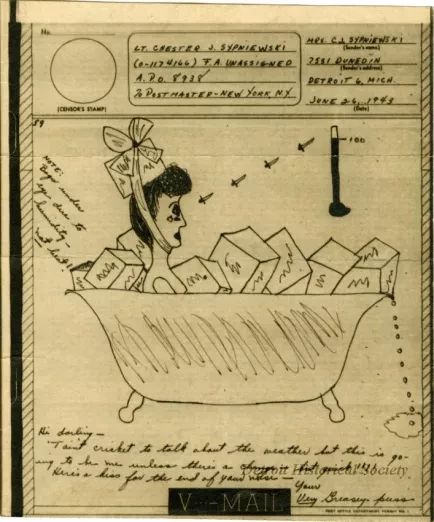 No.
(CENSOR'S STAMP)
LT. CHESTER J. SYPNIEWSKI
(O-1174166) F.A. UNASSIGNED
A.P.O. 8938
% POSTMASTER-NEW YORK, N.Y.
MRS. C.J. SYPNIEWSKI
(Sender's name)
7581 DUNEDIN
(Sender's address)
DETROIT 6, MICH.
JUNE 26, 1943
(Date)
59
NOTE:
Bags under
eyes due to
humidity—
not heat!!
100
Hi darling—
Taint cricket to talk about the weather but this is go-
ing to be me unless there's a change in but quick!!!
Here's a kiss for the end of your nose —
Your
Very Greasy puss
Detroit Historical Society
V-MAIL
POST OFFICE DEPARTMENT PERMIT NO. 1